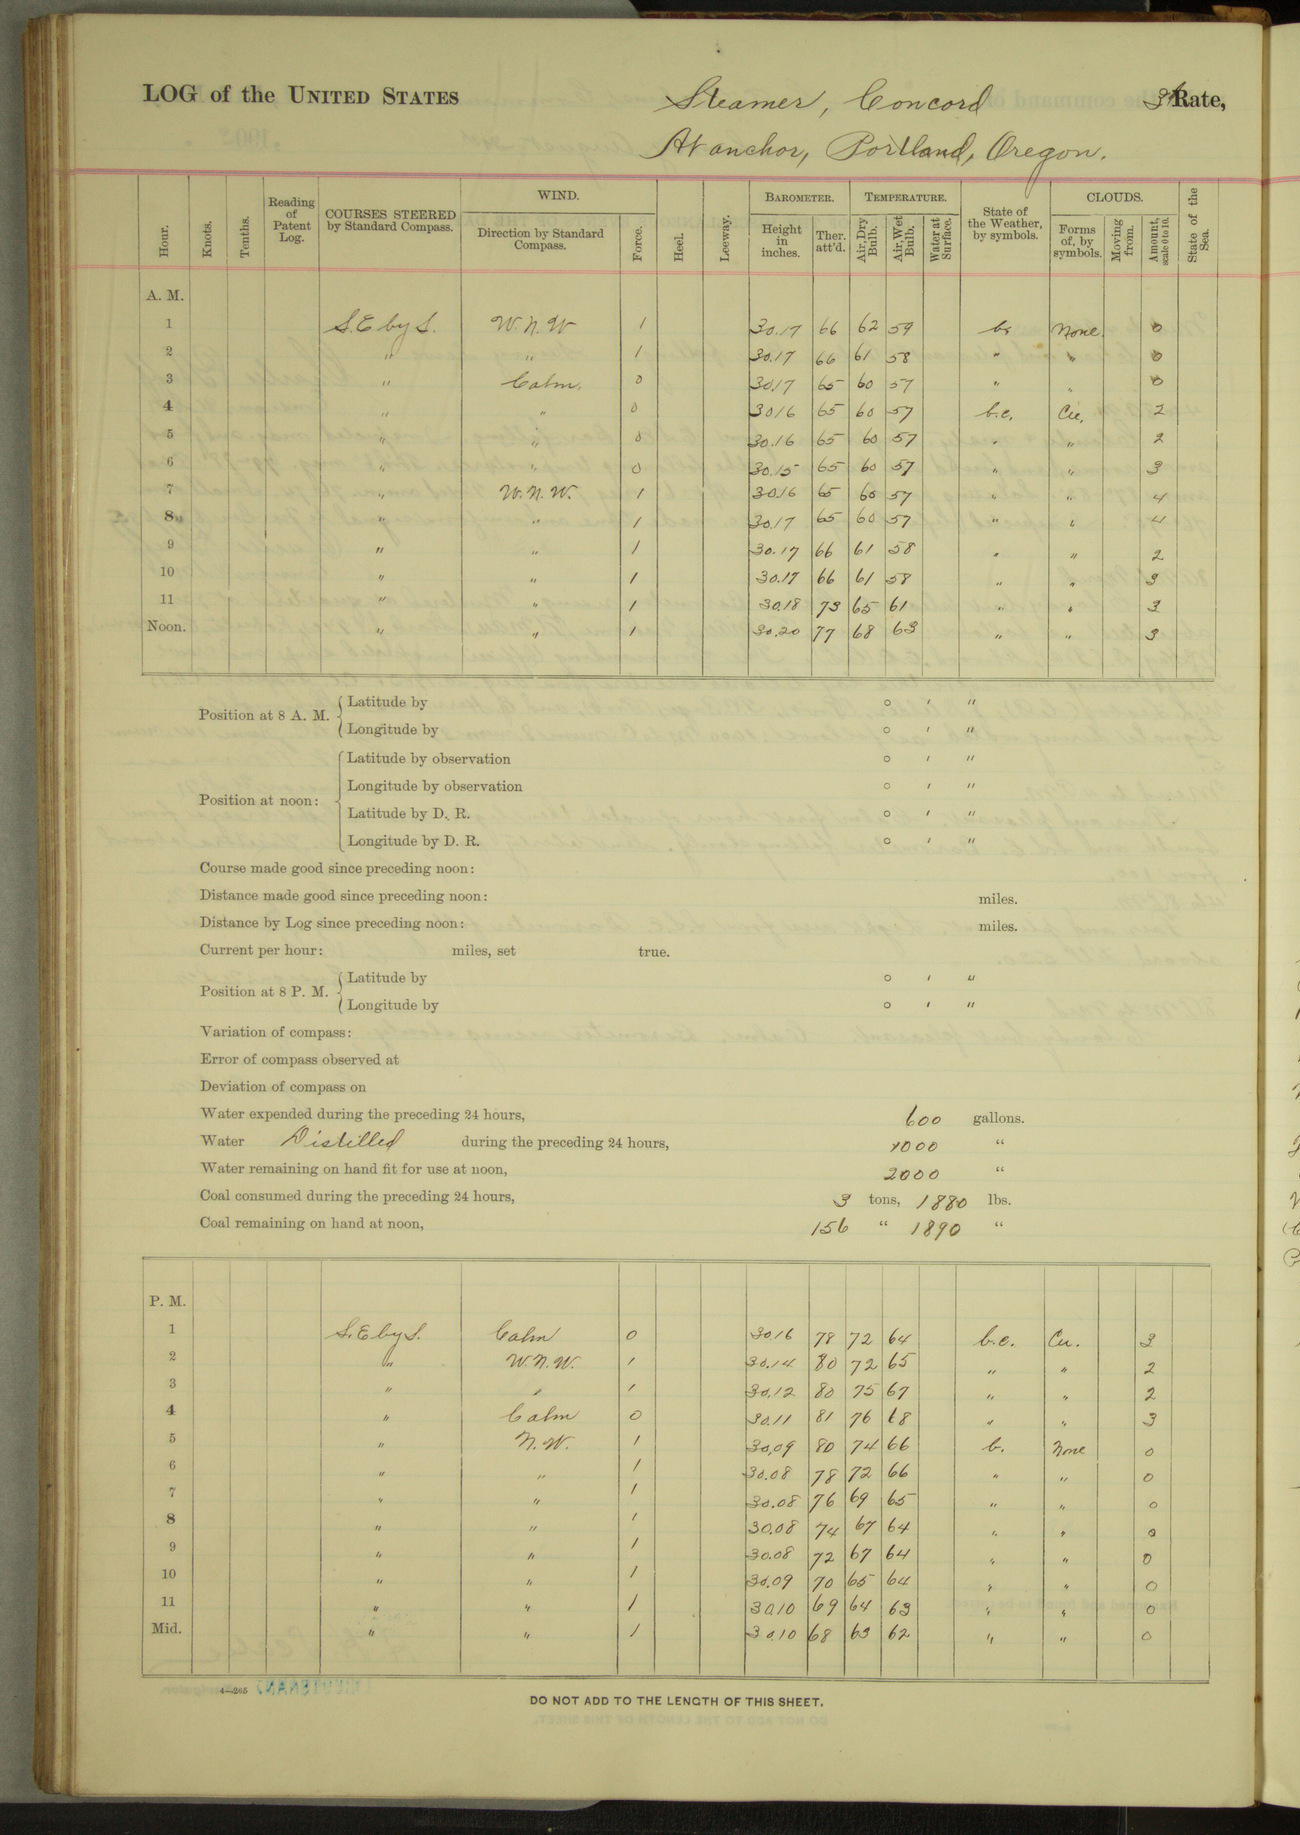 LOG of the UNITED STATES Steamer, Concord 3d Rate,
At anchor, Portland, Oregon.
Hour. Knots. Tenths. Reading of Patent Log. COURSES STEERED by Standard Compass. WIND. Direction by Standard Compass. Force. Heel. Leeway. BAROMETER. Height in inches. Ther. att'd. TEMPERATURE. Air, Dry Bulb. Air, Wet Bulb. Water at Surface. State of the Weather, by symbols. CLOUDS. Forms of, by symbols. Moving from. Amount, scale 0 to 10. State of the Sea.
A. M.
1 S.E by S. W.N.W 1 30.17 66 62 59 b. None 0
2 " " 1 30.17 66 61 58 " " 0
3 " Calm. 0 30.17 65 60 57 " " 0
4 " " 0 30.16 65 60 57 b.c. Cu. 2
5 " " 0 30.16 65 60 57 " " 2
6 " " 0 30.15 65 60 57 " " 3
7 " W.N.W. 1 30.16 65 60 57 " " 4
8 " " 1 30.17 65 60 57 " " 4
9 " " 1 30.17 66 61 58 " " 2
10 " " 1 30.17 66 61 58 " " 3
11 " " 1 30.18 73 65 61 " " 3
Noon. " " 1 30.20 77 68 63 " " 3
Position at 8 A. M. Latitude by ° ′ ″
Longitude by ° ′ ″
Position at noon: Latitude by observation ° ′ ″
Longitude by observation ° ′ ″
Latitude by D. R. ° ′ ″
Longitude by D. R. ° ′ ″
Course made good since preceding noon:
Distance made good since preceding noon: miles.
Distance by Log since preceding noon: miles.
Current per hour: miles, set true.
Position at 8 P. M. Latitude by ° ′ ″
Longitude by ° ′ ″
Variation of compass:
Error of compass observed at
Deviation of compass on
Water expended during the preceding 24 hours, 600 gallons.
Water Distilled during the preceding 24 hours, 1000 "
Water remaining on hand fit for use at noon, 2000 "
Coal consumed during the preceding 24 hours, 3 tons, 1880 lbs.
Coal remaining on hand at noon, 156 " 1890 "
P. M.
1 S.E by S. Calm 0 30.16 78 72 64 b.c. Cu. 3
2 " W.N.W. 1 30.14 80 72 65 " " 2
3 " " 1 30.12 80 75 67 " " 2
4 " Calm 0 30.11 81 76 68 " " 3
5 " N.W. 1 30.09 80 74 66 b. None 0
6 " " 1 30.08 78 72 66 " " 0
7 " " 1 30.08 76 69 65 " " 0
8 " " 1 30.08 74 67 64 " " 0
9 " " 1 30.08 72 67 64 " " 0
10 " " 1 30.09 70 65 64 " " 0
11 " " 1 30.10 69 64 63 " " 0
Mid. " " 1 30.10 68 63 62 " " 0
4—265
DO NOT ADD TO THE LENGTH OF THIS SHEET.